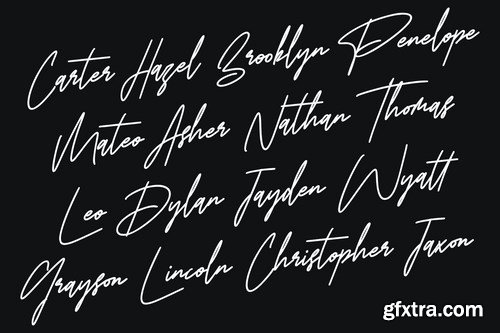 Carter Hazel Brooklyn Penelope
Mateo Asher Nathan Thomas
Leo Dylan Jayden Wyatt
Grayson Lincoln Christopher Jaxon
gfxtra.com